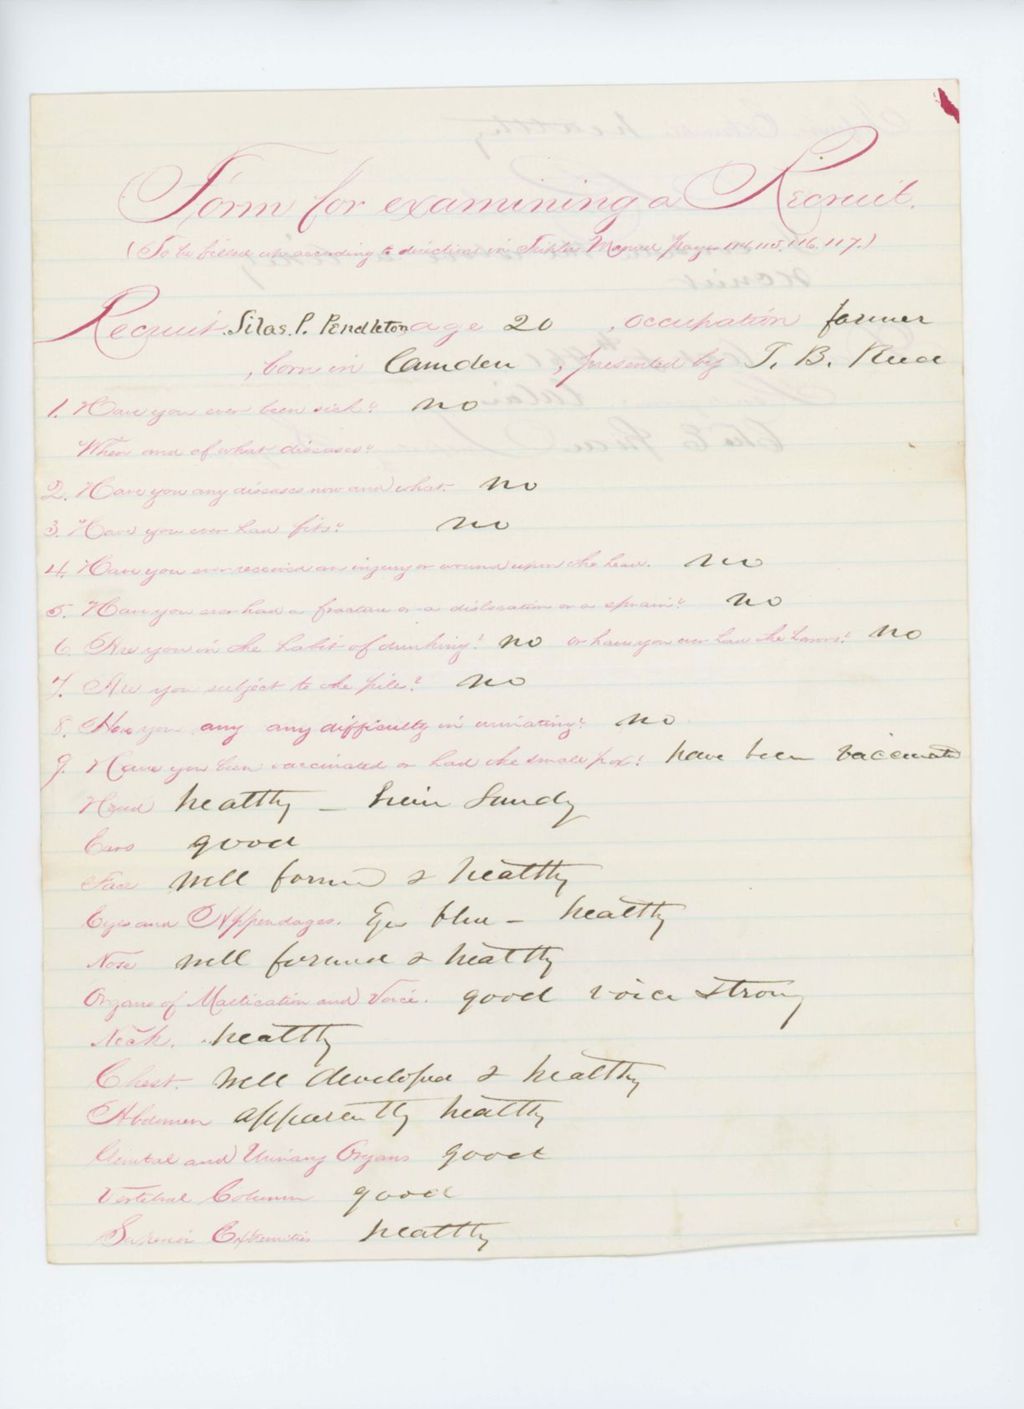 Form for examining a Recruit.
(To be filled up according to directions in Manual pages 114, 115, 116, 117.)
Recruit. Silas. P. Pendleton age 20 , occupation farmer
, born in Camden , presented by T. B.
1. Have you ever been sick? no
When and of what diseases?
2. Have you any disease now and what. no
3. Have you ever had fits? no
4. Have you ever received an injury or wound upon the head. no
5. Have you ever had a fracture or a dislocation or a sprain? no
6. Are you in the habit of drinking? no or have you ever had the horrors? no
7. Are you subject to the pile? no
8. Have you any any difficulty in urinating? no
9. Have you been vaccinated or had the small pox? have been vaccinated
Head healthy – hair Sandy
Ears good
Face well formed & healthy
Eyes and Appendages. Eyes blue – healthy
Nose well formed & healthy
Organs of Mastication and Voice. good voice strong
Neck. healthy
Chest. well developed & healthy
Abdomen apparently healthy
Genital and Urinary Organs good
Vertebral Column good
Superior Extremities healthy